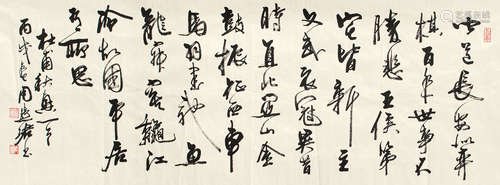 聞道長安似弈
棋百年世事不
勝悲王侯第
宅皆新主
文武衣冠異昔
時直北關山金
鼓振征西車
馬羽書馳魚
龍寂寞秋江
冷故國平居
有所思
杜甫秋興一首
丙戌春周慧珺書